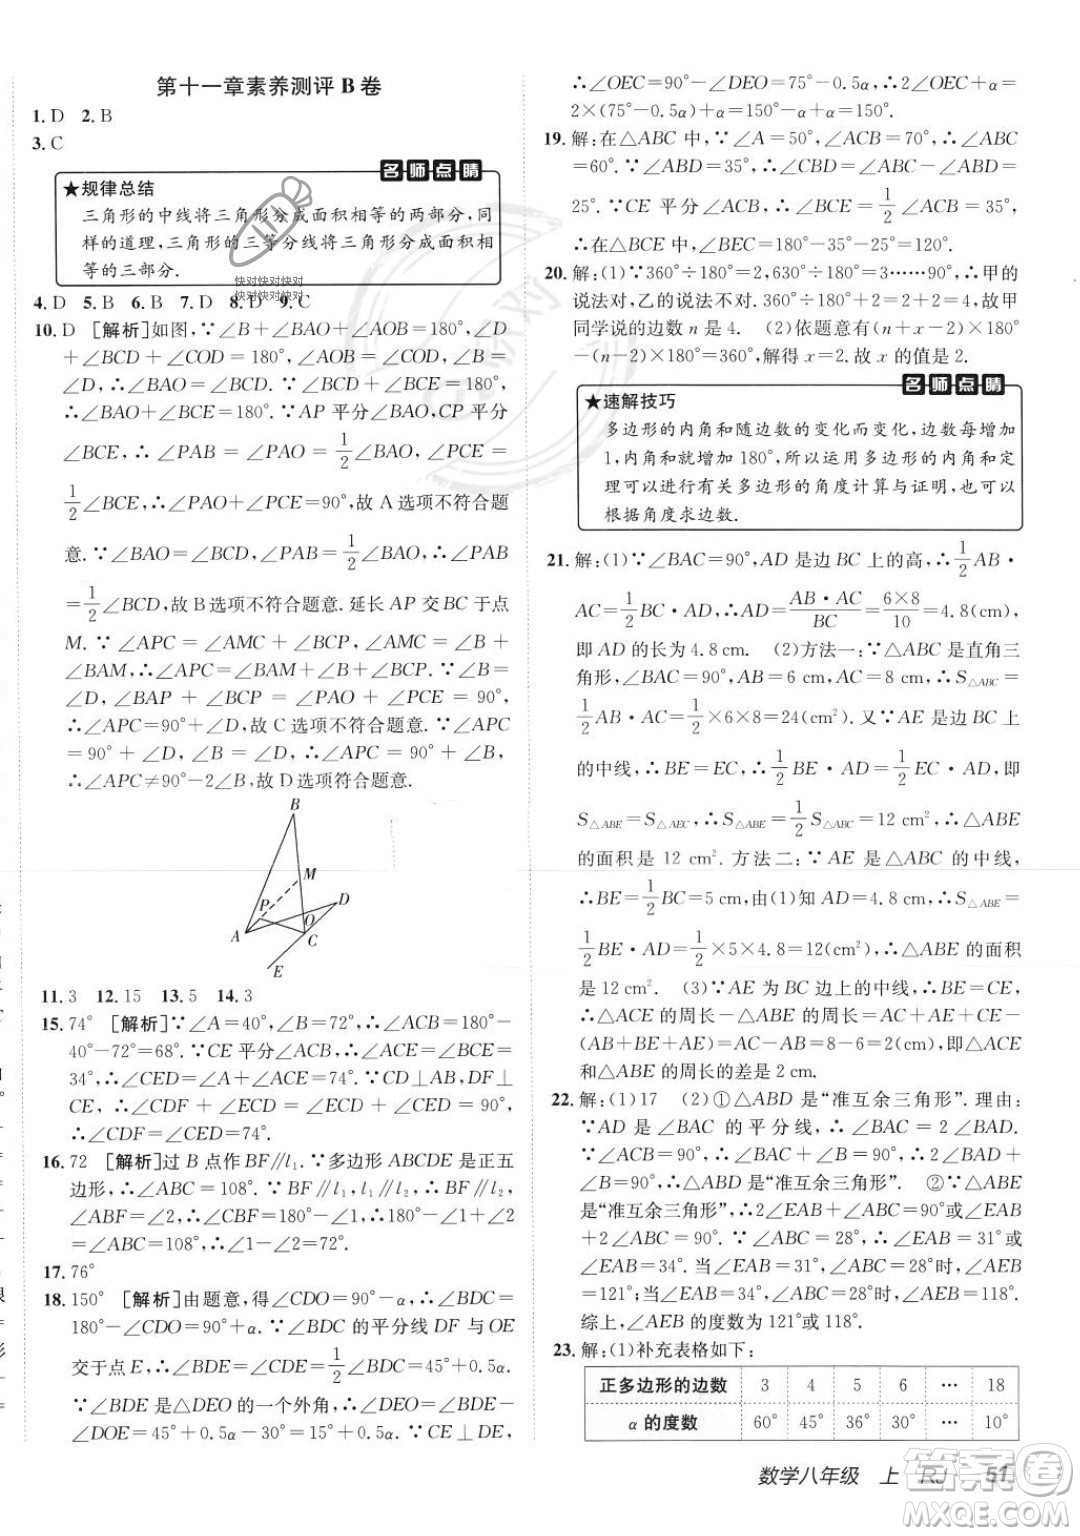 第十一章素养测评 B 卷
1. D  2. B
3. C
名师点睛
★规律总结
三角形的中线将三角形分成面积相等的两部分,同
样的道理,三角形的三等分线将三角形分成面积相
等的三部分.
快对快对快对
快对快对快对
4. D  5. B  6. B  7. D  8. D  9. C
10. D  [解析]如图,∵∠B+∠BAO+∠AOB=180°,∠D
+∠BCD+∠COD=180°,∠AOB=∠COD,∠B=
∠D,∴∠BAO=∠BCD.∵∠BCE+∠BCD=180°,
∴∠BAO+∠BCE=180°.∵AP 平分∠BAO,CP 平分
∠BCE,∴∠PAB=∠PAO=1/2∠BAO,∠PCE=
1/2∠BCE,∴∠PAO+∠PCE=90°,故 A 选项不符合题
意.∵∠BAO=∠BCD,∠PAB=1/2∠BAO,∴∠PAB
=1/2∠BCD,故 B 选项不符合题意.延长 AP 交 BC 于点
M.∵∠APC=∠AMC+∠BCP,∠AMC=∠B+
∠BAM,∴∠APC=∠BAM+∠B+∠BCP.∵∠B=
∠D,∠BAP+∠BCP=∠PAO+∠PCE=90°,
∴∠APC=90°+∠D,故 C 选项不符合题意.∵∠APC
=90°+∠D,∠B=∠D,∴∠APC=90°+∠B,
∴∠APC≠90°-2∠B,故 D 选项符合题意.
B
M
P
D
A
O
C
E
11. 3  12. 15  13. 5  14. 3
15. 74°  [解析]∵∠A=40°,∠B=72°,∴∠ACB=180°-
40°-72°=68°.∵CE 平分∠ACB,∴∠ACE=∠BCE=
34°,∴∠CED=∠A+∠ACE=74°.∵CD⊥AB,DF⊥
CE,∴∠CDF+∠ECD=∠ECD+∠CED=90°,
∴∠CDF=∠CED=74°.
16. 72  [解析]过 B 点作 BF∥l₁.∵多边形 ABCDE 是正五
边形,∴∠ABC=108°.∵BF∥l₁,l₁∥l₂,∴BF∥l₂,
∠ABF=∠2,∴∠CBF=180°-∠1,∴180°-∠1+∠2
=∠ABC=108°,∴∠1-∠2=72°.
17. 76°
18. 150°  [解析]由题意,得∠CDO=90°-α,∴∠BDC=
180°-∠CDO=90°+α.∵∠BDC 的平分线 DF 与 OE
交于点 E,∴∠BDE=∠CDE=1/2∠BDC=45°+0.5α.
∵∠BDE 是△DEO 的一个外角,∴∠DEO=∠BDE-
∠DOE=45°+0.5α-30°=15°+0.5α.∵∠C=90°,
∴∠OEC=90°-∠DEO=75°-0.5α,∴∠OEC+α=
2×(75°-0.5α)+α=150°-α+α=150°.
19. 解:在△ABC 中,∵∠A=50°,∠ACB=70°,∴∠ABC
=60°.∵∠ABD=35°,∴∠CBD=∠ABC-∠ABD=
25°.∵CE 平分∠ACB,∴∠BCE=1/2∠ACB=35°,
∴在△BCE 中,∠BEC=180°-25°-35°=120°.
20. 解:(1)∵360°÷180°=2,630°÷180°=3……90°,∴甲的
说法对,乙的说法不对.360°÷180°+2=2+2=4,故甲
同学说的边数 n 是 4.  (2)依题意有(n+x-2)×180°
-(n-2)×180°=360°,解得 x=2.故 x 的值是 2.
名师点睛
★速解技巧
多边形的内角和随边数的变化而变化,边数每增加
1,内角和就增加 180°,所以运用多边形的内角和定
理可以进行有关多边形的角度计算与证明,也可以
根据角度求边数.
21. 解:(1)∵∠BAC=90°,AD 是边 BC 上的高,∴1/2AB·
AC=1/2BC·AD,∴AD=AB·AC/BC=6×8/10=4.8(cm),
即 AD 的长为 4.8 cm.  (2)方法一:∵△ABC 是直角三
角形,∠BAC=90°,AB=6 cm,AC=8 cm,∴S△ABC=
1/2AB·AC=1/2×6×8=24(cm²).又∵AE 是边 BC 上
的中线,∴BE=EC,∴1/2BE·AD=1/2EC·AD,即
S△ABE=S△AEC,∴S△ABE=1/2S△ABC=12 cm²,∴△ABE
的面积是 12 cm².方法二:∵AE 是△ABC 的中线,
∴BE=1/2BC=5 cm,由(1)知 AD=4.8 cm,∴S△ABE=
1/2BE·AD=1/2×5×4.8=12(cm²),∴△ABE 的面积
是 12 cm².  (3)∵AE 为 BC 边上的中线,∴BE=CE,
∴△ACE 的周长-△ABE 的周长=AC+AE+CE-
(AB+BE+AE)=AC-AB=8-6=2(cm),即△ACE
和△ABE 的周长的差是 2 cm.
22. 解:(1)17  (2)①△ABD 是“准互余三角形”.理由:
∵AD 是∠BAC 的平分线,∴∠BAC=2∠BAD.
∵∠ACB=90°,∴∠BAC+∠B=90°,∴2∠BAD+
∠B=90°,∴△ABD 是“准互余三角形”.  ②∵△ABE
是“准互余三角形”,∴2∠EAB+∠ABC=90°或∠EAB
+2∠ABC=90°.∵∠ABC=28°,∴∠EAB=31°或
∠EAB=34°.当∠EAB=31°,∠ABC=28°时,∠AEB
=121°;当∠EAB=34°,∠ABC=28°时,∠AEB=118°.
综上,∠AEB 的度数为 121°或118°.
23. 解:(1)补充表格如下:
正多边形的边数 3 4 5 6 … 18
α 的度数 60° 45° 36° 30° … 10°
数学八年级 上 RJ 51
答案圈
MXQE.COM